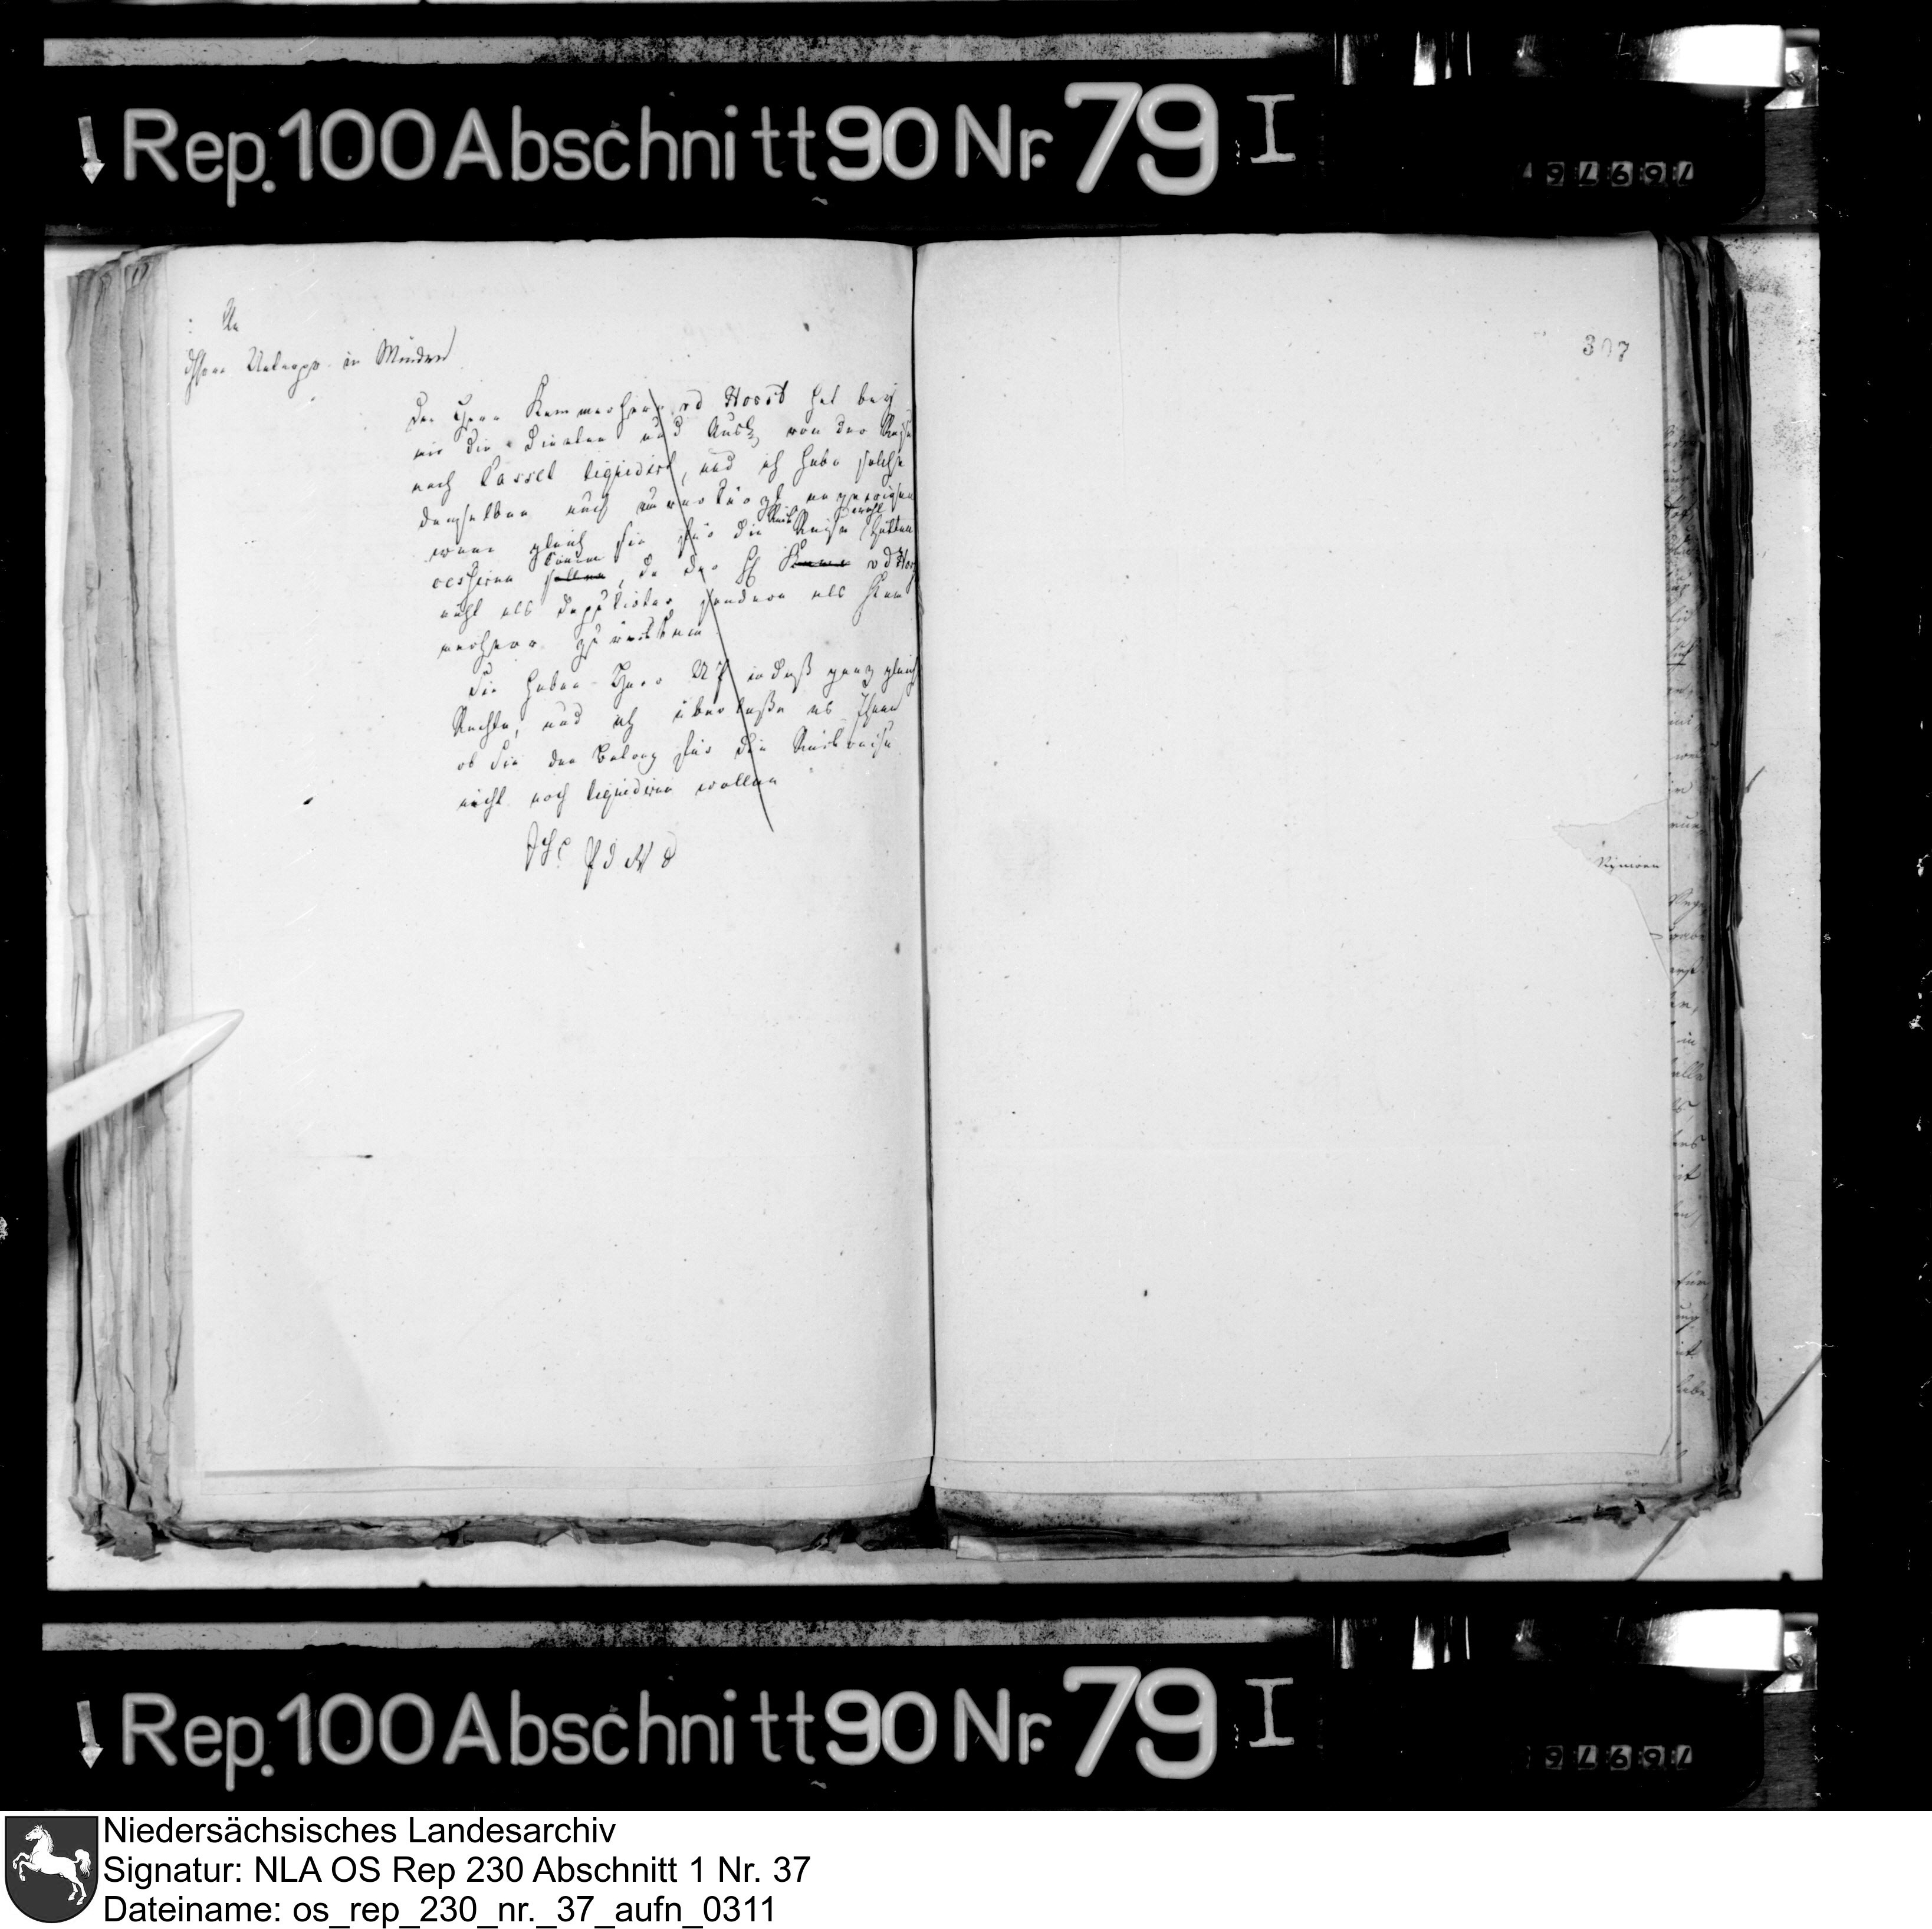 Rep. 100 Abschnitt 90 Nr. 79 I
76976
An
Herrn Unterpr. in Minden
307
Der Herr Kammerherr v d Horst hat bey
mir die Diaeten und Ausl. von der Reise
nach Cassel liquidirt, und ich habe solche
demselben auch unverkürzt angewiesen
wenn gleich sie für die Reise hätten
cessiren können sollen, da der H v d Horst
nicht als Deputirter sondern als Kam
merherr zurückkam
Sie haben Herr UP indeß ganz gleiche
Rechte, und ich überlaße es Ihnen
ob Sie den Belang für die Rückreise
nicht noch liquidiren wollen
Rep. 100 Abschnitt 90 Nr. 79 I
76976
Niedersächsisches Landesarchiv
Signatur: NLA OS Rep 230 Abschnitt 1 Nr. 37
Dateiname: os_rep_230_nr._37_aufn_0311